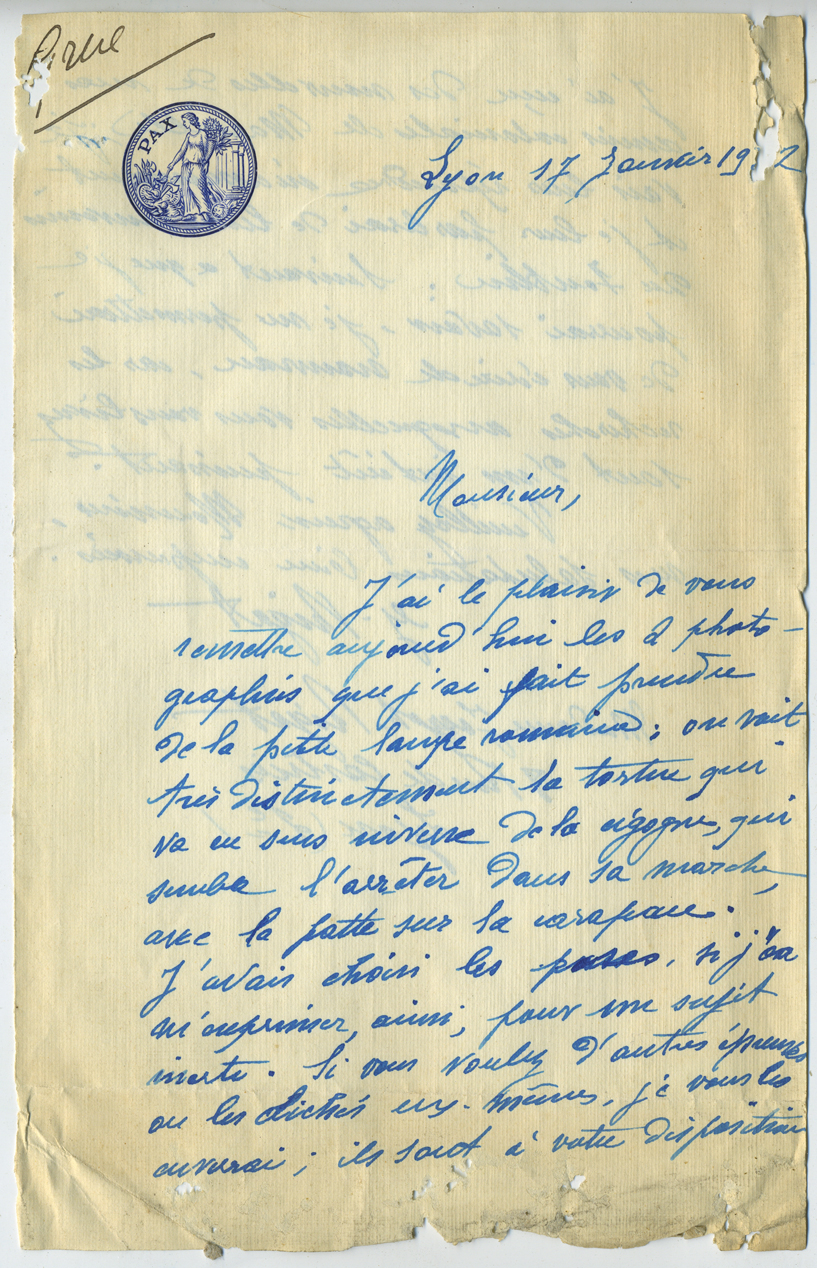 PAX
Lyon 17 Janvier 19 2
Monsieur,
J'ai le plaisir de vous
remettre aujourd'hui les 2 photo-
graphies que j'ai fait prendre
de la petite lampe romaine; on voit
très distinctement la tortue qui
va en sens inverse de la cigogne, qui
semble l'arrêter dans sa marche,
avec la patte sur la carapace.
J'avais choisi les poses, si j'ose
m'exprimer, ainsi, pour un sujet
inerte. Si vous voulez d'autres épreuves
ou les clichés eux-mêmes, je vous les
enverrai; ils sont à votre disposition